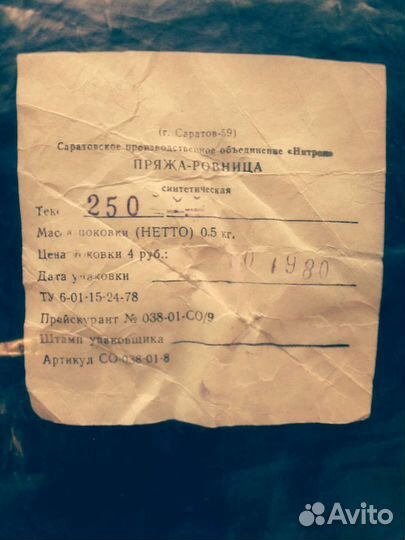 (г. Саратов-59)
Саратовское производственное объединение «Нитрон»
ПРЯЖА-РОВНИЦА
синтетическая
Текс 250
Масса поковки (НЕТТО) 0.5 кг.
Цена поковки 4 руб.:
Дата упаковки 10 1980
ТУ 6-01-15-24-78
Прейскурант № 038-01-СО/9
Штамп упаковщика
Артикул СО-038-01-8
Avito